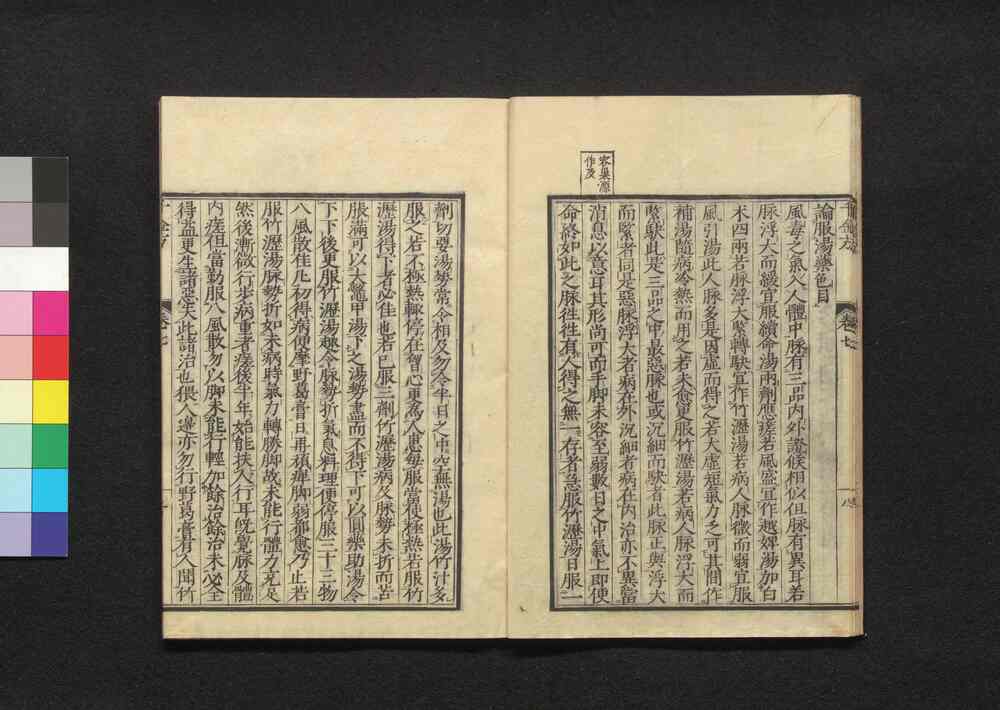 論服湯藥色目
風毒之氣入人體中脉有三品内外證候相似但脉有異耳若
脉浮大而緩宜服續命湯兩劑應瘥若風盛宜作越婢湯加白
朮四兩若脉浮大緊轉駃宜作竹瀝湯若病人脉微而弱宜服
風引湯此人脉多是因虚而得之若大虚短氣力乏可其間作
補湯隨病冷熱而用之若未愈更服竹瀝湯若病人脉浮大而
緊駃此是三品之中最惡脉也或沉細而駃者此脉正與浮大
而緊者同是惡脉浮大者病在外沉細者病在内治亦不異當
消息以意耳其形尚可而手脚未容至弱數日之中氣上即便
命終如此之脉徃徃有人得之無一存者急服竹瀝湯日服一
容巢源
作及
卷七
劑切要湯勢常令相及勿令半日之中空無湯也此湯竹汁多
服之若不極熱輙停在智心更爲人患每服當使極熱若服竹
瀝湯得下者必佳也若已服三劑竹瀝湯病及脉勢未折而苦
脹滿可以大鼈甲湯下之湯勢盡而不得下可以圓藥助湯令
下下後更服竹瀝湯趣令脉勢折氣息料理便停服三十三物
八風散佳凡初得病便摩野葛膏日再頑痺脚弱都愈乃止若
服竹瀝湯脉勢折如未病時氣力轉勝脚故未能行體力充足
然後漸微行步病重者瘥後半年始能扶人行耳既覺脉及體
内瘥但當勤服八風散勿以脚未能行輕加餘治餘治未必全
得益更生諸惡失此諸治也猥人邊亦勿行野葛膏有人聞竹
卷七